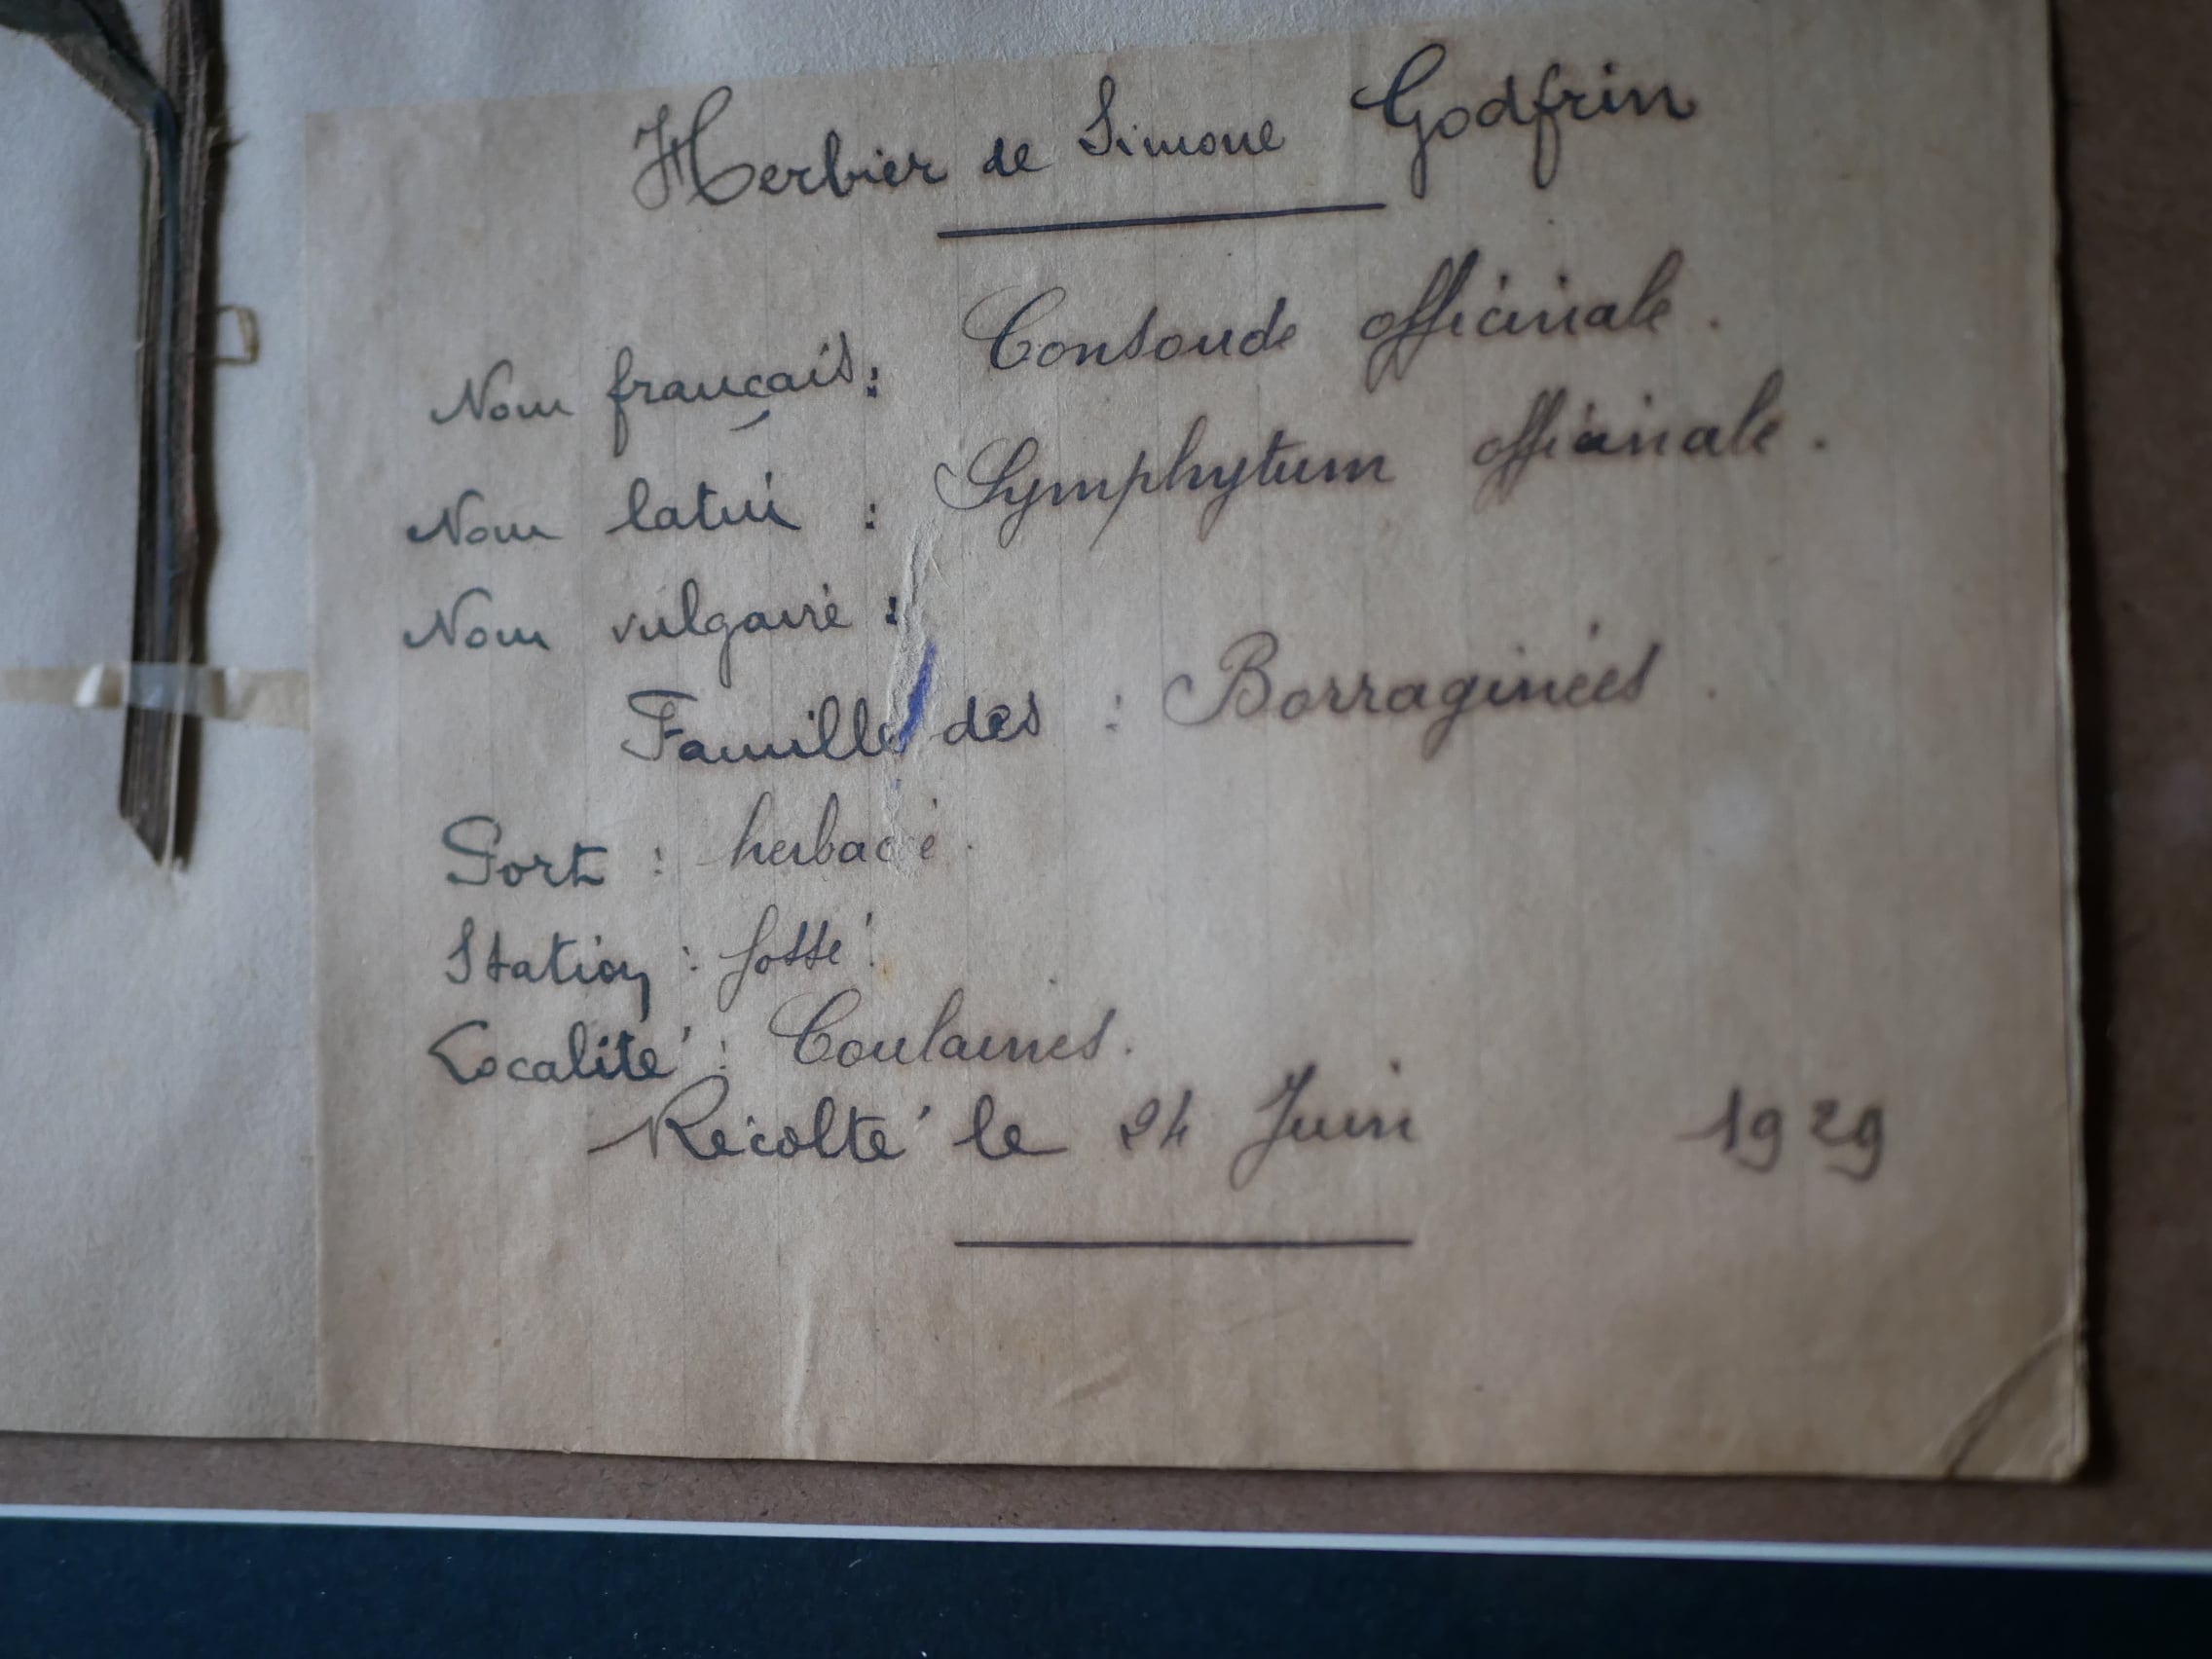 Herbier de Simone Godfrin
Nom français : Consoude officinale.
Nom latin : Symphytum officinale.
Nom vulgaire :
Famille des : Borraginées.
Port : herbacé.
Station : fossé.
Localité : Coulaines.
Récolté le 24 Juin 1929